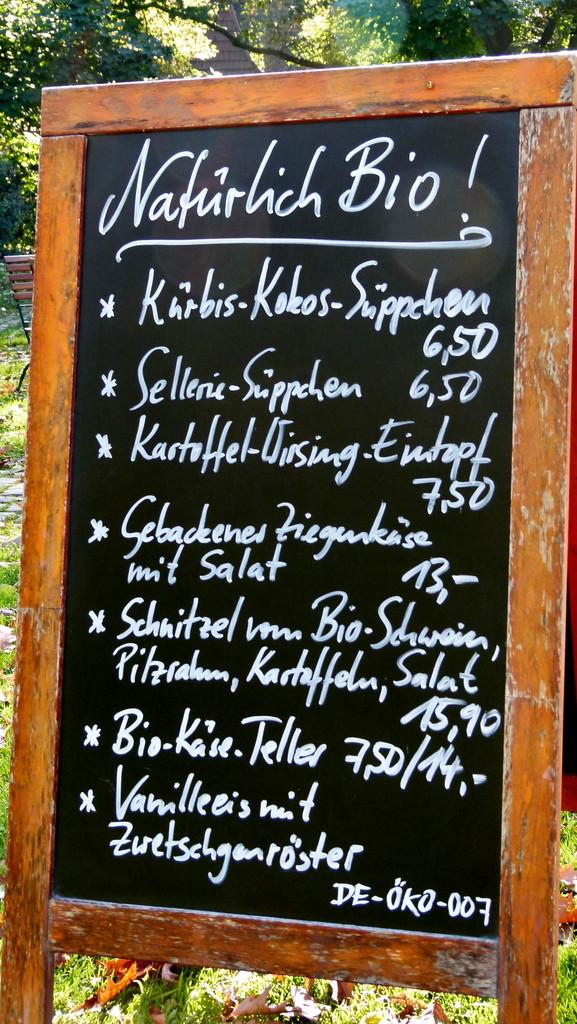 Natürlich Bio!
* Kürbis-Kokos-Süppchen
6,50
* Sellerie-Süppchen 6,50
* Kartoffel-Wirsing-Eintopf
7,50
* Gebackener Ziegenkäse
mit Salat 13,-
* Schnitzel vom Bio-Schwein,
Pilzrahm, Kartoffeln, Salat
15,90
* Bio-Käse-Teller 7,50/14,-
* Vanilleeis mit
Zwetschgenröster
DE-ÖKO-007